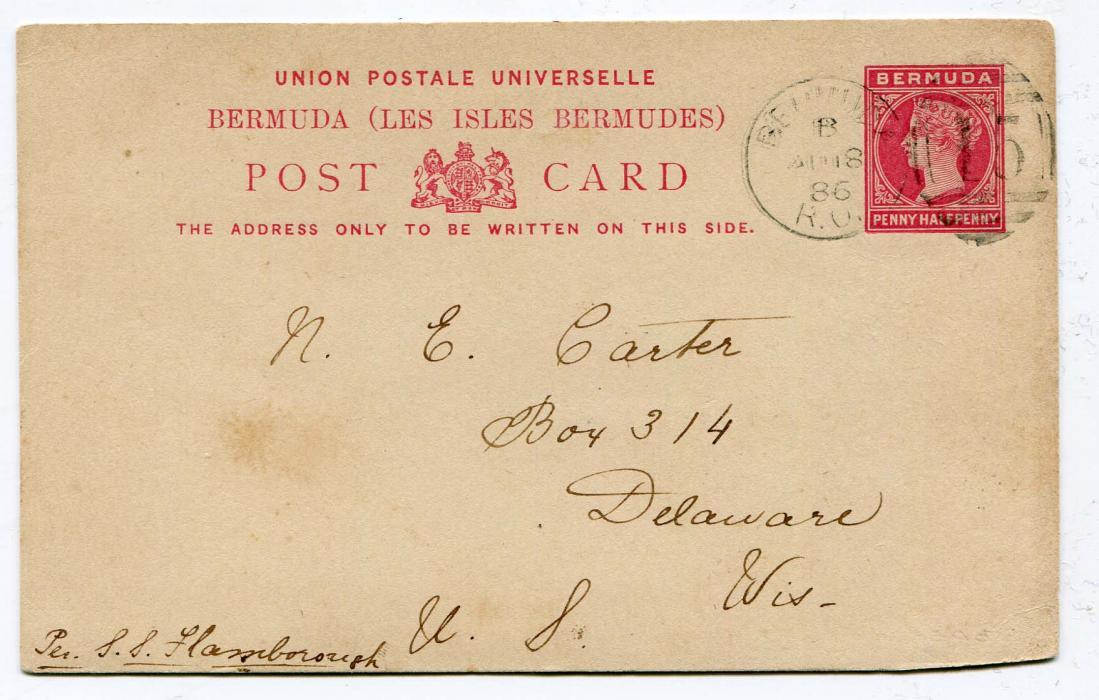 UNION POSTALE UNIVERSELLE
BERMUDA (LES ISLES BERMUDES)
POST CARD
THE ADDRESS ONLY TO BE WRITTEN ON THIS SIDE.
BERMUDA
PENNY HALFPENNY
B
18
86
R.O.
15
N. E. Carter
Box 314
Delaware
Wis-
U. S.
Per. S.S. Flamborough